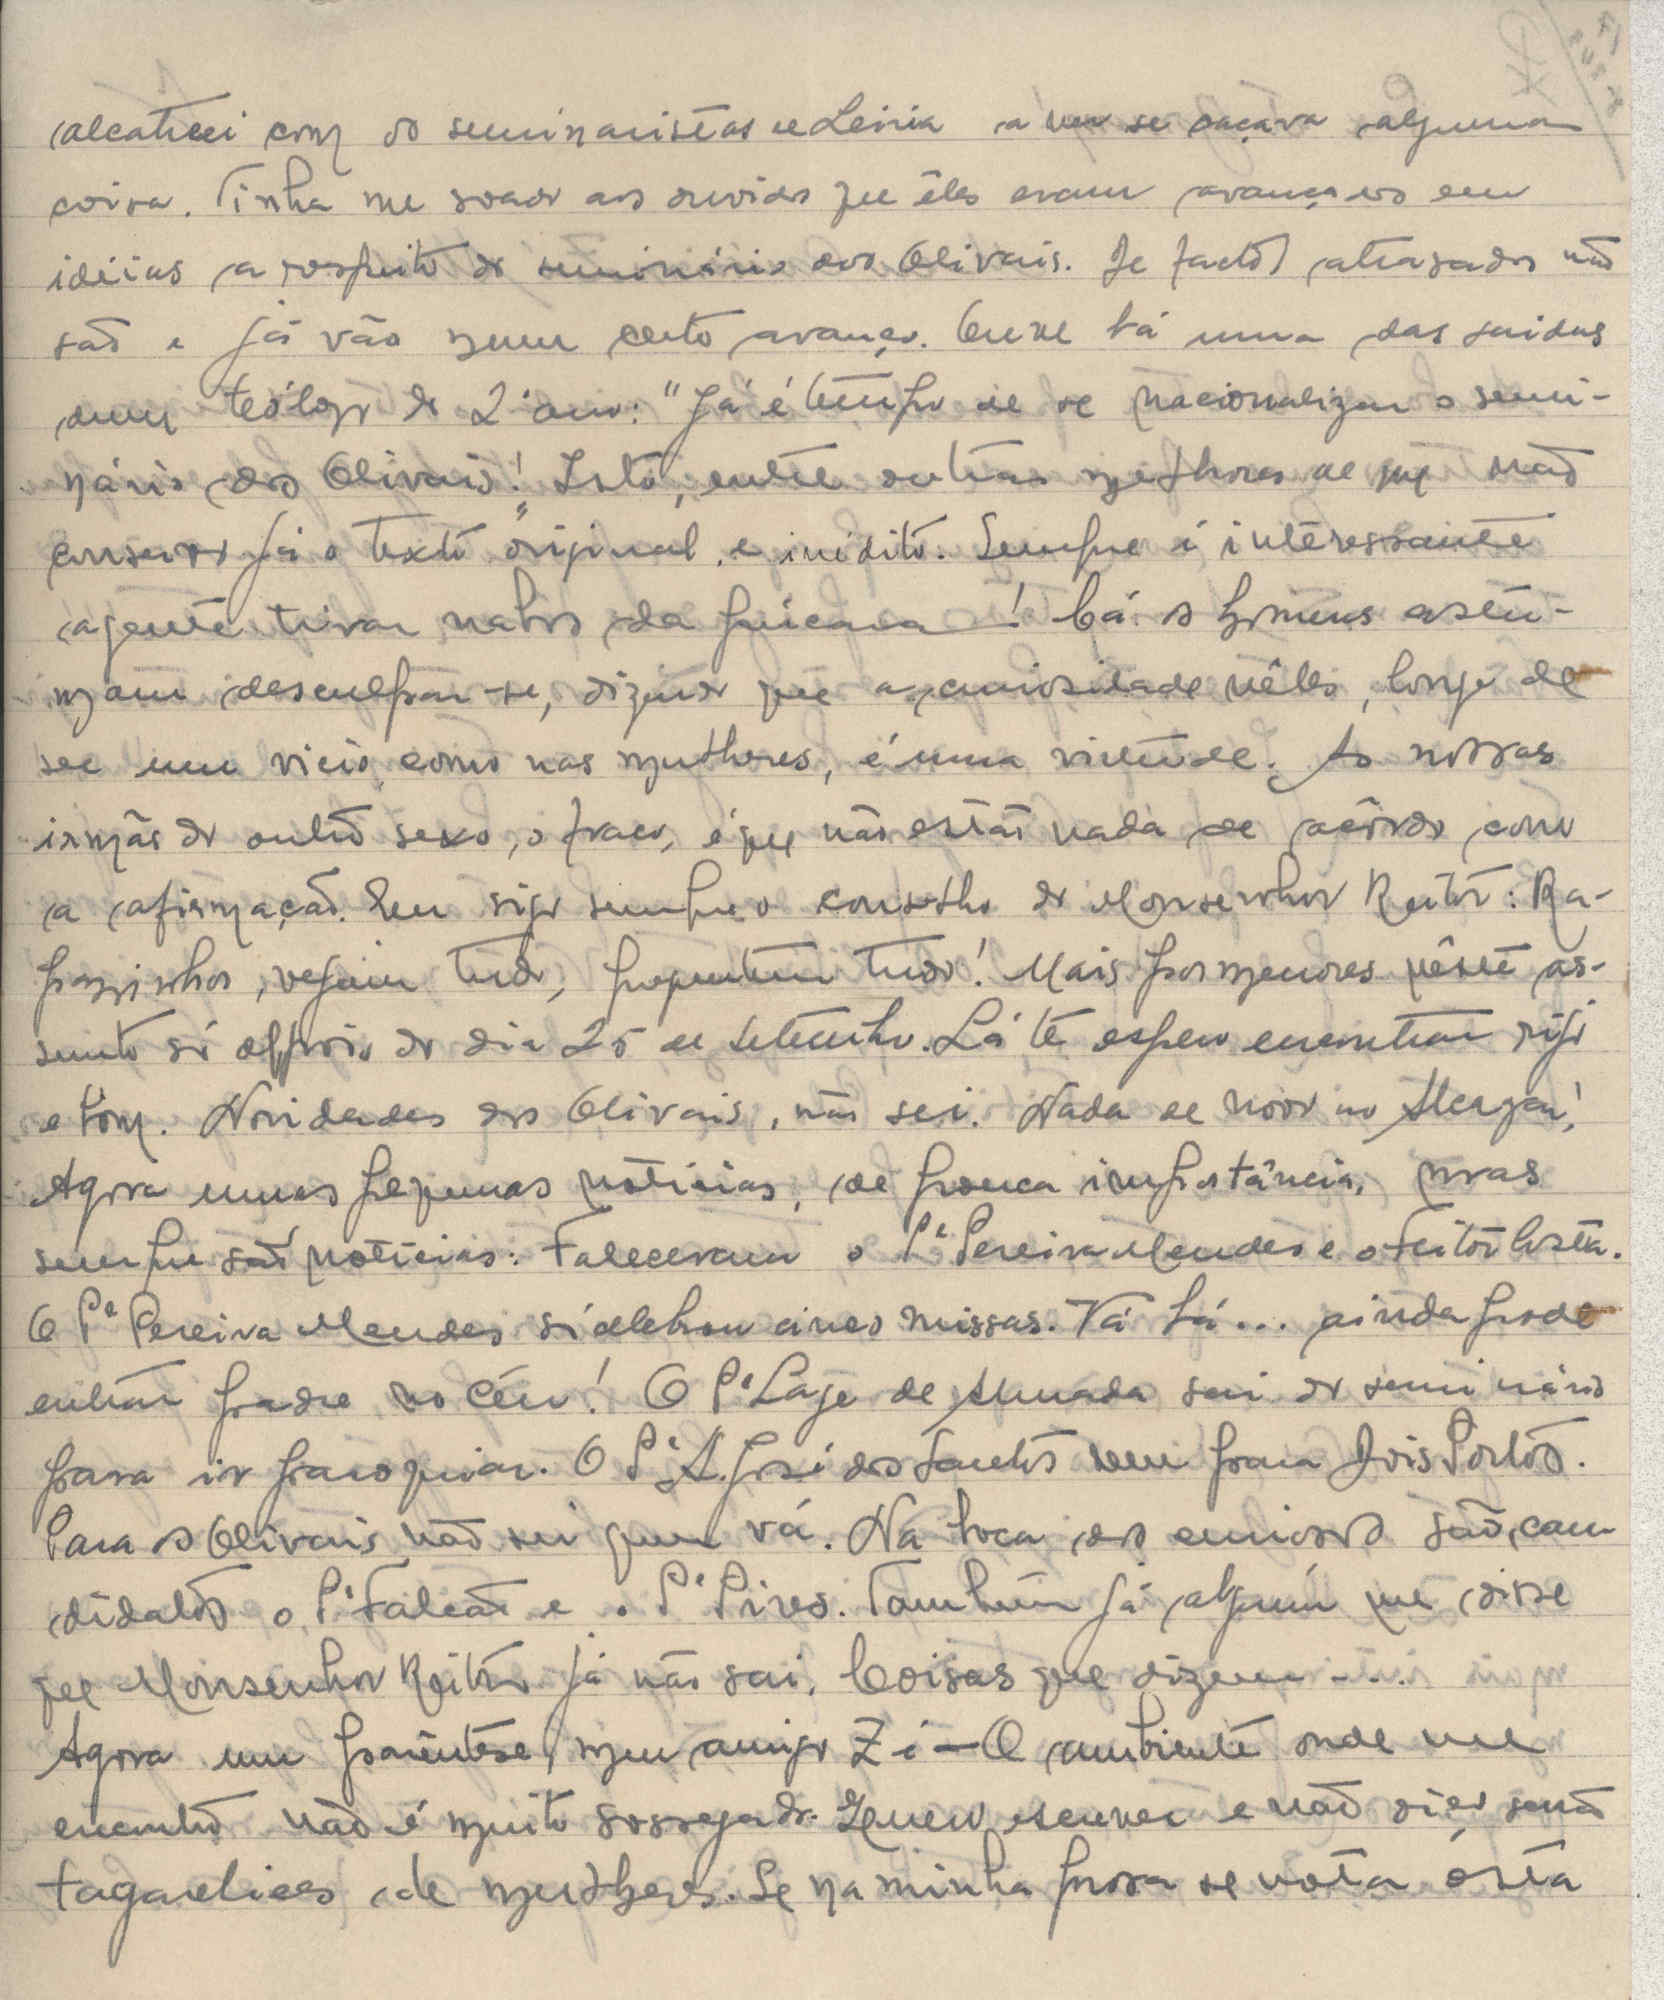 com os seminaristas de Leiria a ver se caçava alguma
coisa. Tinha me soado aos ouvidos que êles eram avançados em
idéias a respeito do seminário dos Olivais. De facto, atrasados não
são e já vão num certo avanço. Ouve lá uma das saidas
dum teólogo do 2º ano: "Já é tempo de se nacionalizar o semi-
nário dos Olivais!" Isto, entre outras melhores de que não
conservo já o texto original e inédito. Sempre é interessante
a gente tirar nabos da púcara! Cá os homens costu-
mam desculpar-se, dizendo que a curiosidade nêles, longe de
ser um vicio como nas mulheres, é uma virtude. As nossas
irmãs do outro sexo, o fraco, é que não estão nada de acôrdo com
a afirmação. Eu sigo sempre o conselho do Monsenhor Reitor: Ra-
pazinhos, vejam tudo, preguntem tudo! Mais pormenores nêste as-
sunto só depois do dia 25 de Setembro. Lá te espero encontrar rijo
e bom. Novidades dos Olivais, não sei. Nada de novo no
Agora umas pequenas noticias, de pouca importância, mas
sempre são noticias: Faleceram o Pe Pereira Mendes e o Feitor Costa.
O Pe Pereira Mendes só celebrou cinco missas. Vá lá... ainda pode
entrar padre no Céu! O Pe Laje de Almada sai do seminário
para ir paroquiar. O Pe A. José dos Santos vem para Dois Portos.
Para os Olivais não sei quem vá. Na boca dos curiosos são can
didatos o Pe Falcão e o Pe Pires. Também já alguém me disse
que Monsenhor Reitor já não sai. Coisas que dizem ...
Agora um parêntese, meu amigo Zé - O ambiente onde me
encontro não é muito sossegado. Quero escrever e não oiço senão
tagarelices de mulheres. Se na minha prosa se nota esta